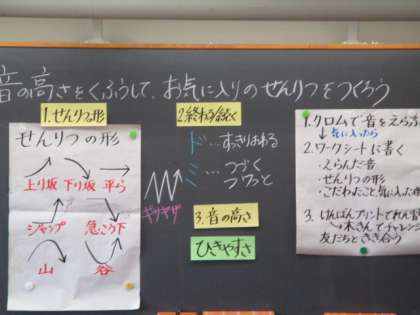 音の高さをくふうして、お気に入りのせんりつをつくろう
1.せんりつの形
せんりつの形
上り坂 下り坂 平ら
ジャンプ 急こう下
山 谷
ギザギザ
2.終わる・続く
ド…すっきりおわる
ミ…つづく
フワっと
3.音の高さ
ひきやすさ
1.クロムで音をえらぶ
↓気に入ったら
2.ワークシートに書く
・えらんだ音
・せんりつの形
・こだわったこと、気に入った
3.けんばんプリントでれん習
→木きんでチャレンジ
友だちとききあう